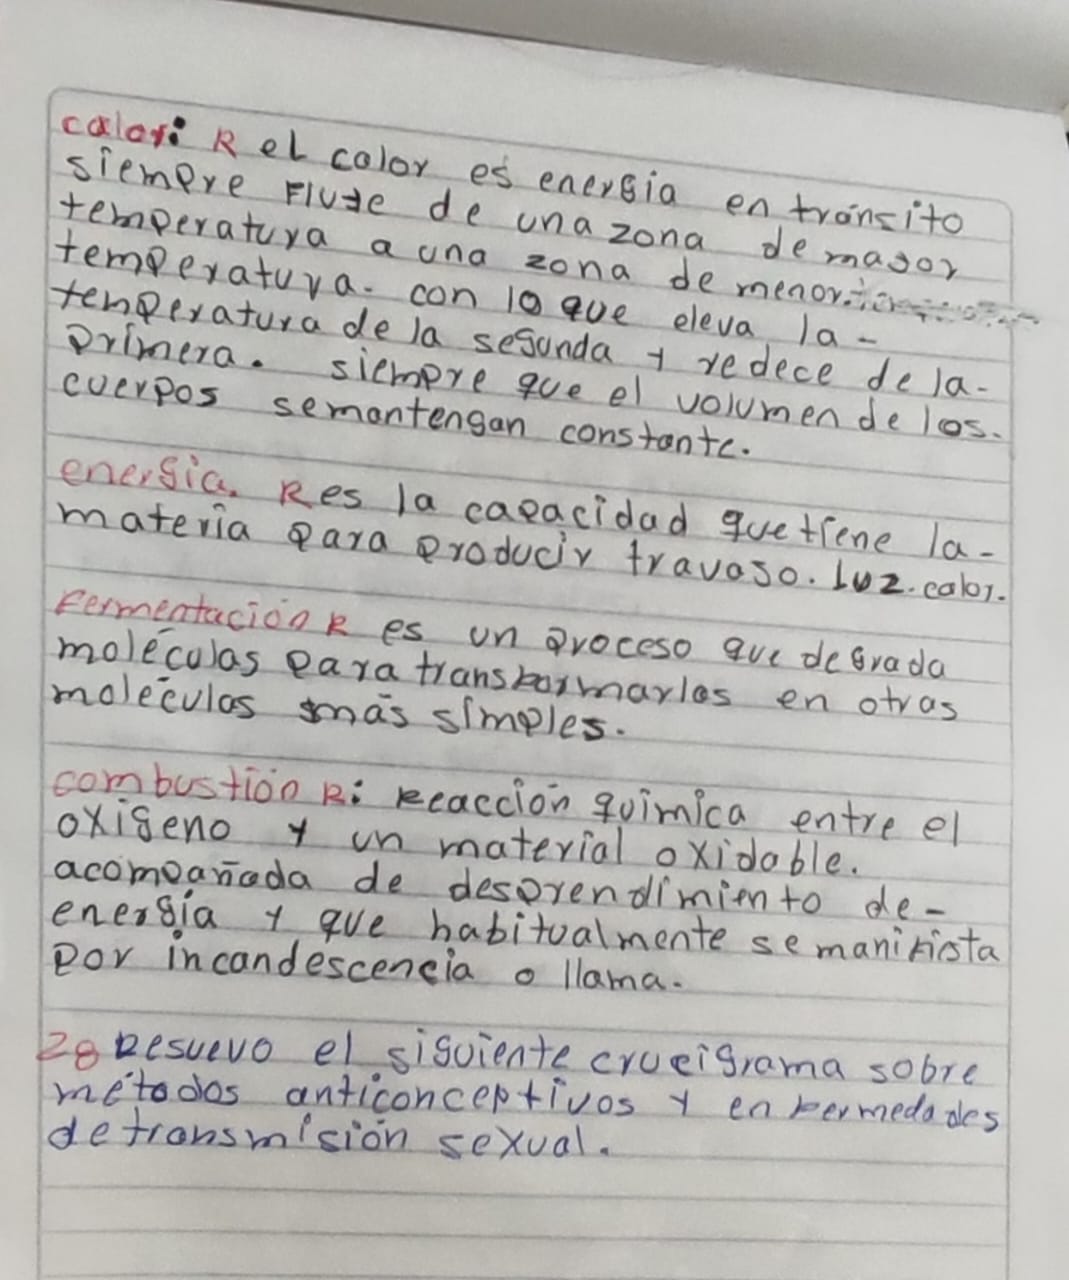 calor: R el calor es energia en tránsito
siempre Fluye de una zona de mayor
temperatura a una zona de menor.
temperatura. con lo que eleva la-
temperatura de la segunda y redece de la-
primera. siempre que el volumen de los.
cuerpos se mantengan constante.
energia. R es la capacidad que tiene la-
materia para producir travaso. Luz. calor.
Fermentación R es un proceso que degrada
moléculas para transformarlas en otras
moléculas más simples.
combustión R: Reacción química entre el
oxigeno y un material oxidable.
acompañada de desprendimiento de-
energía y que habitualmente se manifista
por incandescencia o llama.
28 Resuevo el siguiente crucigrama sobre
métodos anticonceptivos y enfermedades
de transmisión sexual.